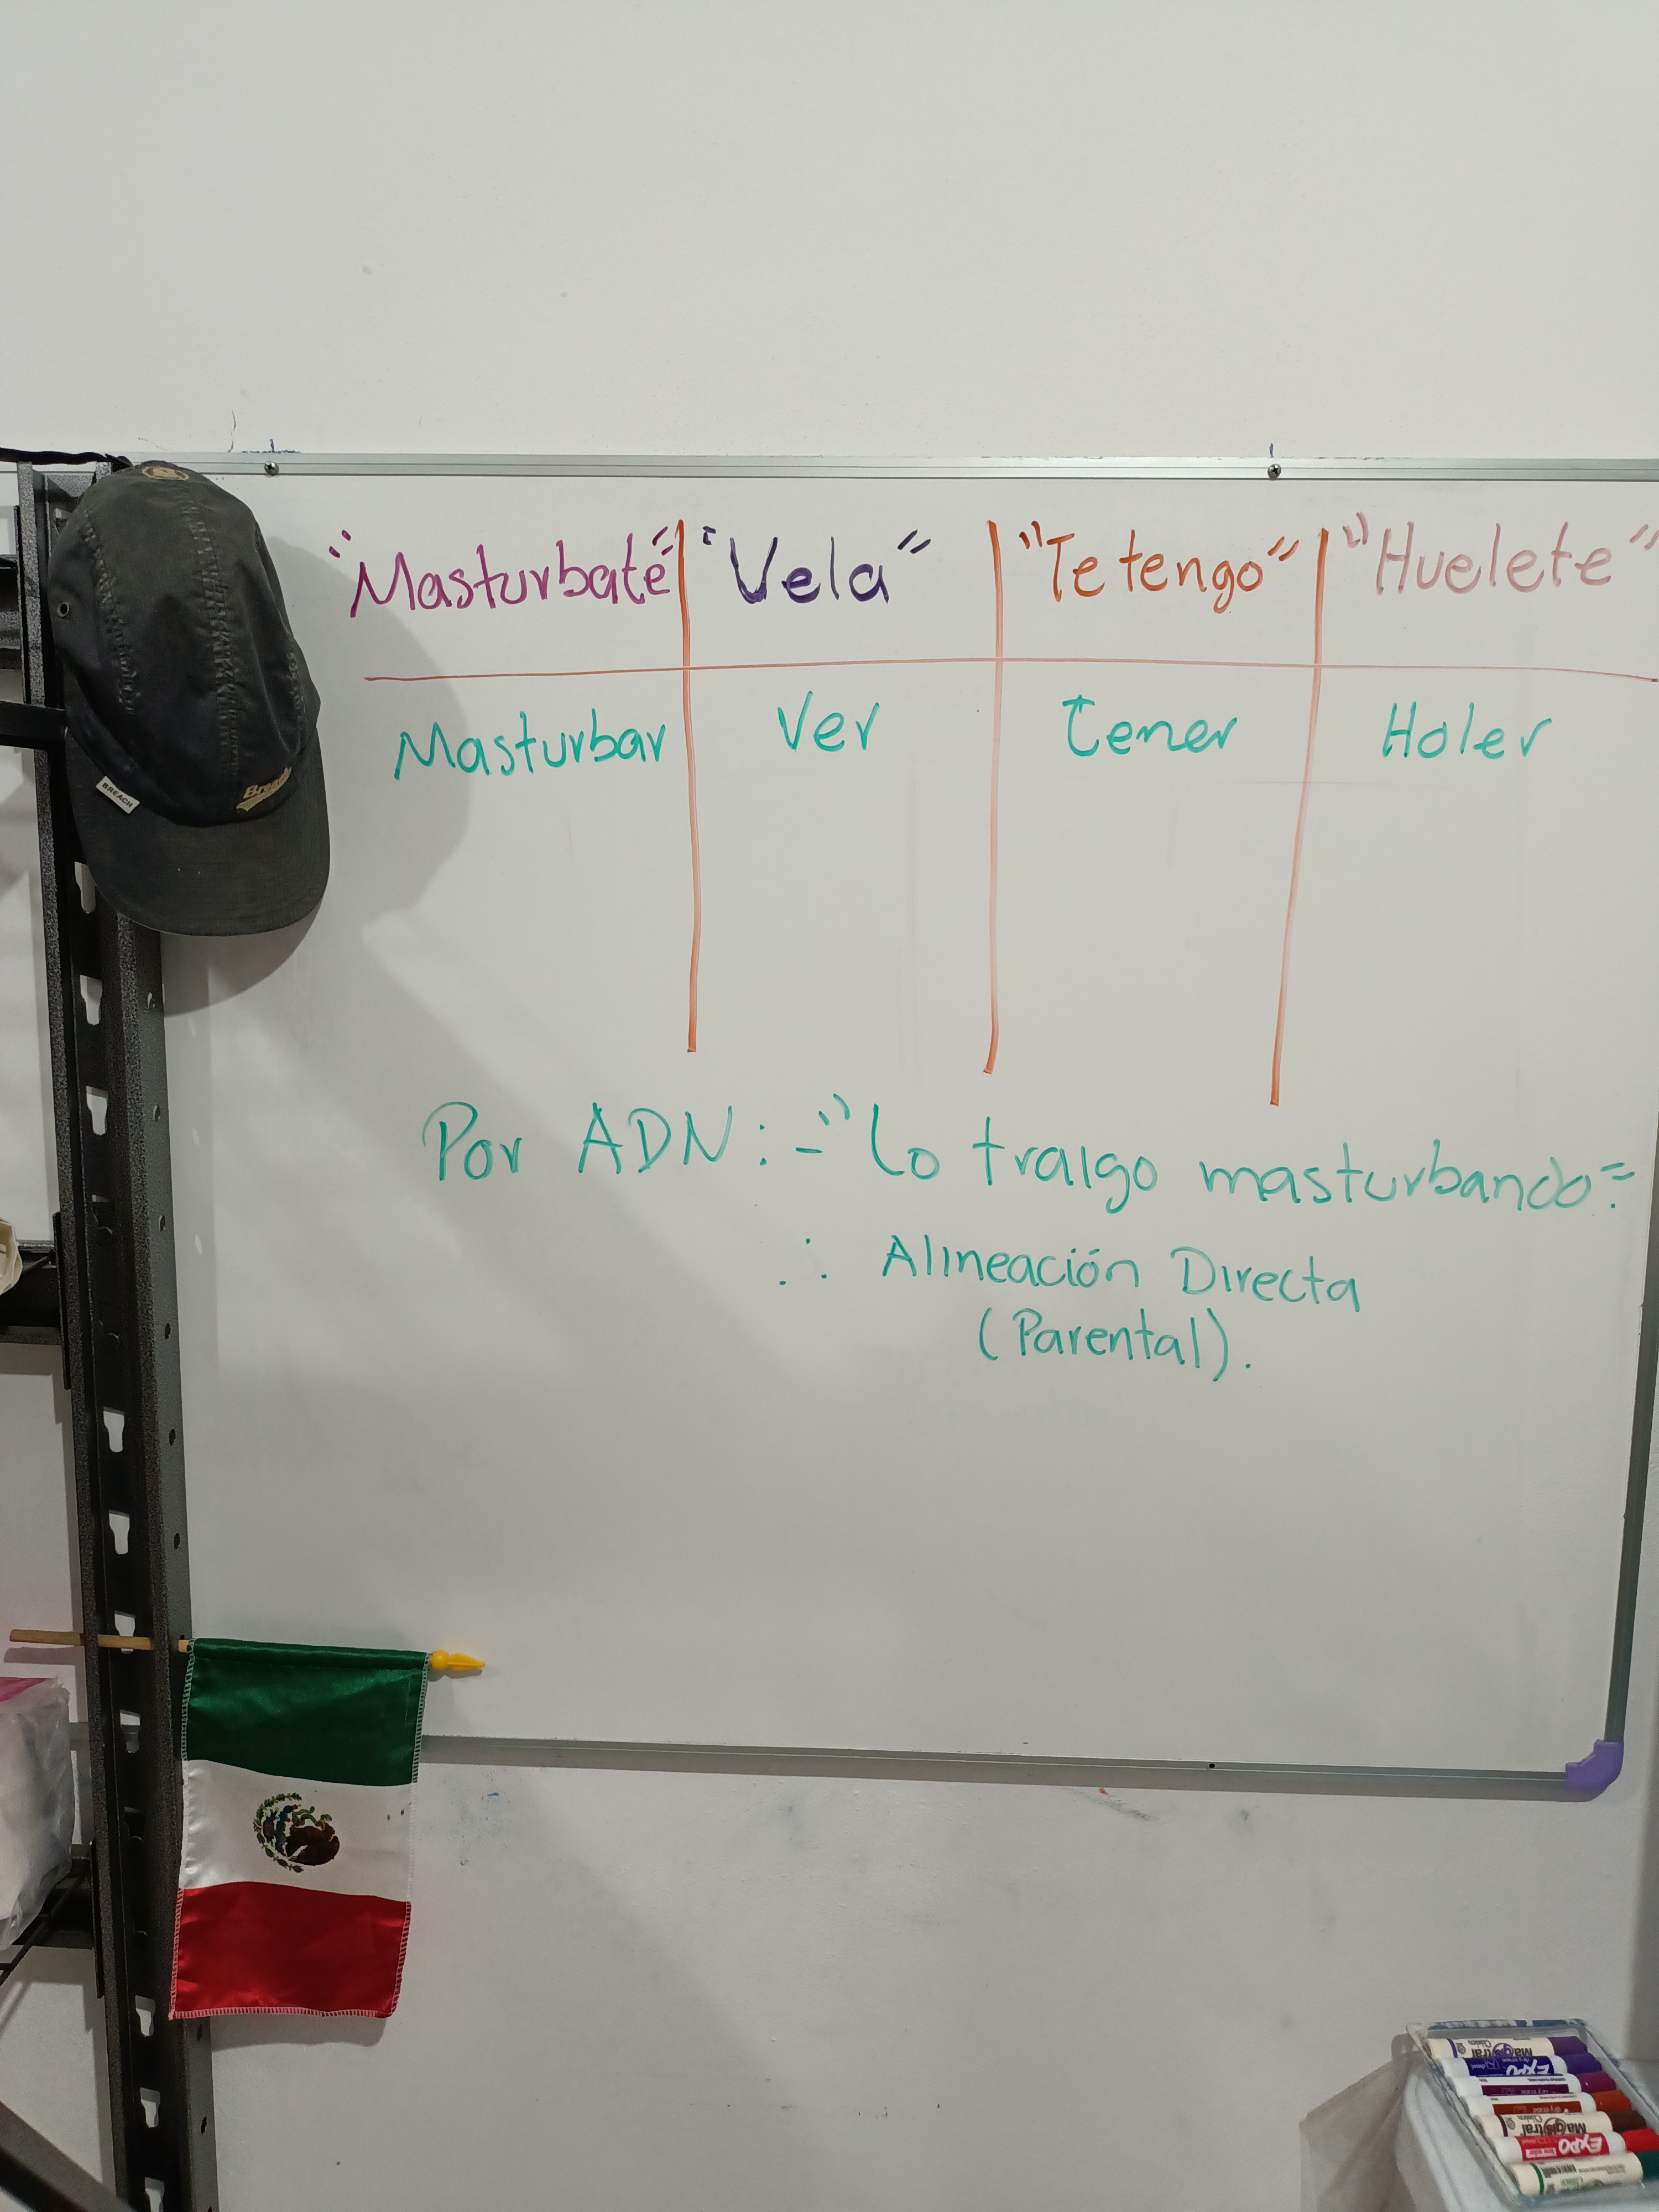 "Masturbaté" "Vela" "Te tengo" "Huelete"
Masturbar Ver Tener Holer
Por ADN: - "Lo tralgo masturbando"
∴ Alineación Directa
(Parental).
BREACH
Magistral
EXPO
Magistral
EXPO